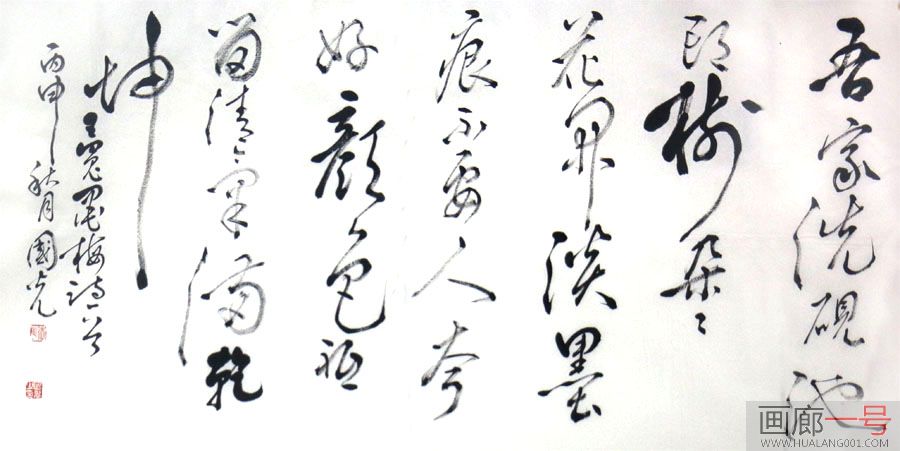 吾家洗硯池
頭樹朵々
花開淡墨
痕不要人夸
好顏色祗
留清氣滿乾
坤
王冕墨梅詩一首
丙申秋月國光
画廊一号
WWW.HUALANG001.COM